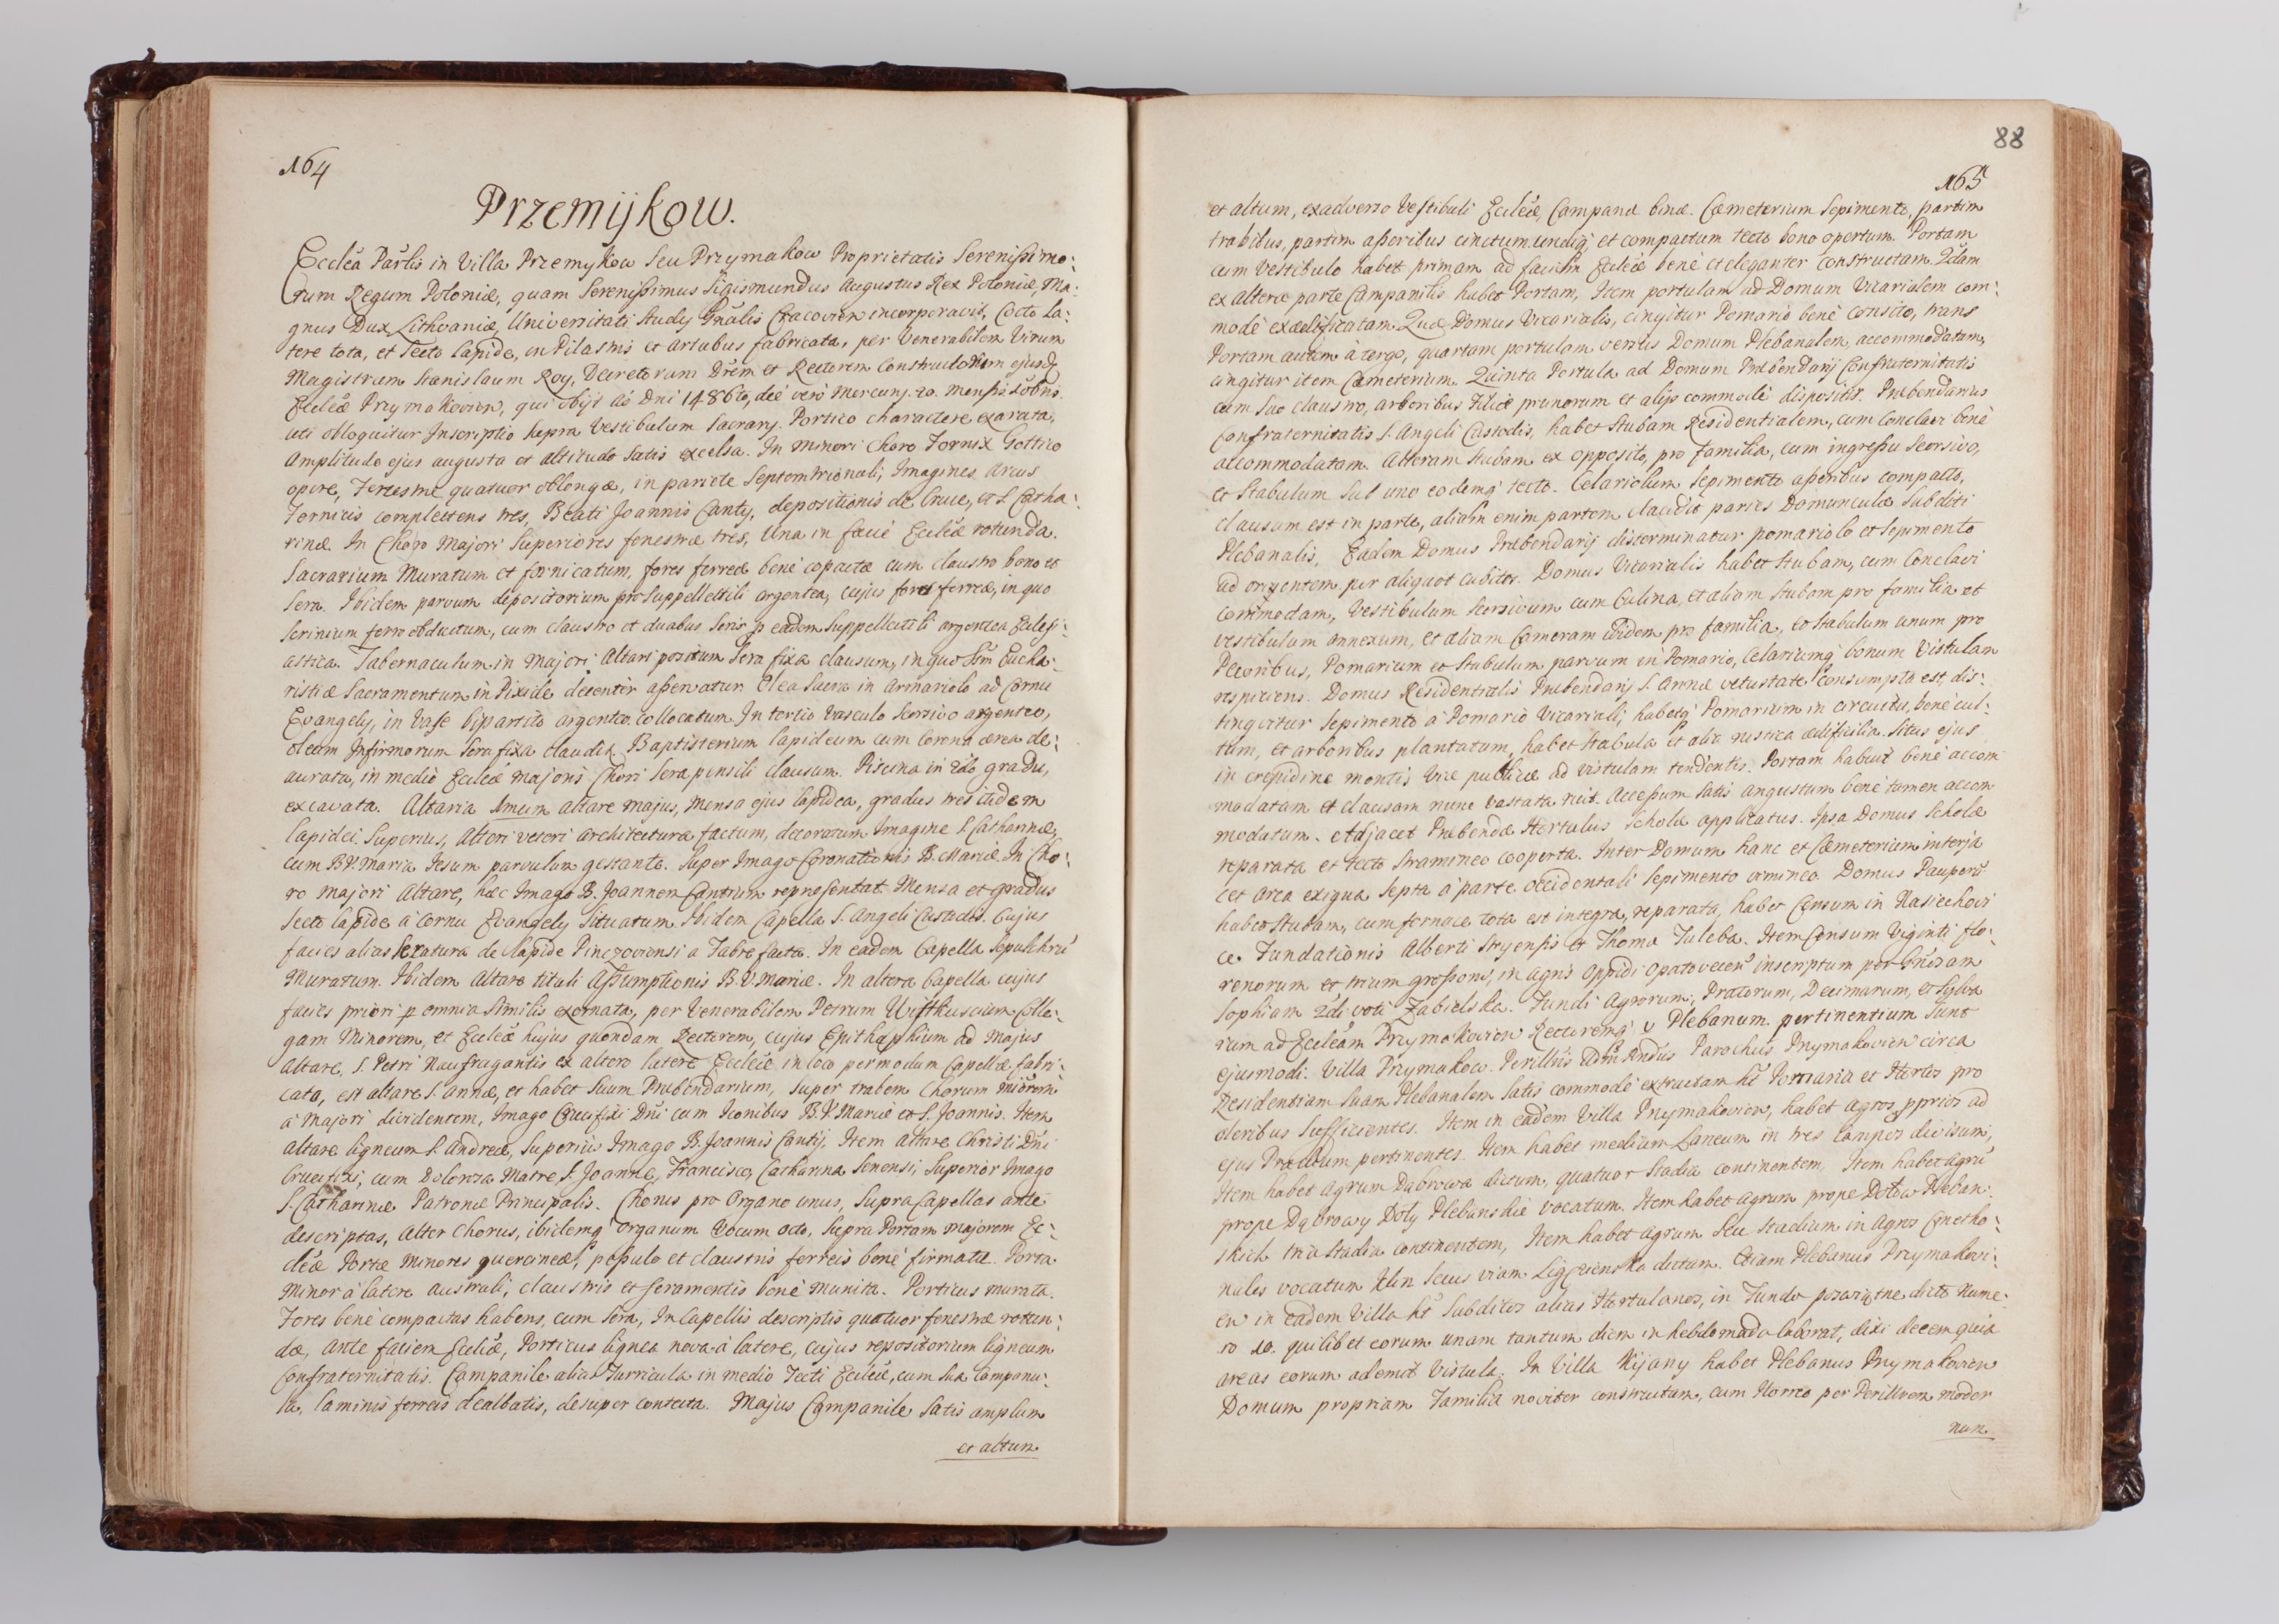 164
Przemijkow.
Ecclēa Parlis in Villa Przemykow seu Przymakow Proprietatis Serenissimo:
rum Regum Poloniæ, quam Serenissimus Sigismundus Augustus Rex Poloniæ, Ma:
gnus Dux Lithvaniæ, Universitati Studij Gnālis Cracovien incorporavit, Cocto La:
tere tota, et Secto Lapide, in Pilastris et Artubus fabricata, per Venerabilem Virum
Magistrum Stanislaum Roy, Decretorum Drēm et Rectorem Constructorem ejusdē
Ecclēæ Przymakovien, qui obijt Aō Dni 1486to, die vero Mercurij 20. Mensis
uti obloquitur Inscriptio supra Vestibulum Sacrarij. Portico charactere exarata,
Amplitudo ejus augusta et altitudo satis excelsa. In minori Choro Fornix Gottico
opere, Fenestræ quatuor oblongæ, in pariete Septemtrionali, Imagines arcus
Fornicis complettens tres, Beati Joannis Canty, depositionis de Cruce, et S. Catha:
rinæ. In Choro Majori Superiores fenestræ tres, Una in facie Ecclēæ rotunda.
Sacrarium Muratum et fornicatum, fores ferreæ bene copactæ cum claustro bono et
Sera. Ibidem parvum depositorium pro Suppellettili argentea, cujus fores ferreæ, in quo
Scrinium ferro obductum, cum claustro et duabus Seris p eadem Suppellectili argentea Eclesi:
astica. Tabernaculum in majori Altari positum Sera fixa clausum, in quo Ssm Eucha:
ristiæ Sacramentum in Pixide decentèr asservatur. Olea Sacra in armariolo ad Cornu
Evangely, in Vase bipartito argenteo collocatum. In tertio vasculo Seorsivo argenteo,
oleum Infirmorum Sera fixa claudit. Baptisterium lapideum cum Corona ærea de:
aurata, in medio Ecclēæ Majoris Chori Sera pensili clausum. Piscina in 2do gradu,
excavata. Altaria 1mum altare majus, Mensa ejus lapidea, gradus tres itidem
lapidei. Superius, Altari veteri architectura factum, decoratum Imagine S. Catharinæ,
cum B.V. Maria Jesum parvulum gestante. Super Imago Coronationis B. Mariæ. In Cho:
ro majori Altare, hæc Imago B. Joannem Cantium repræsentat. Mensa et gradus
Secto lapide a Cornu Evangely Situatum. Ibidem Capella S. Angeli Custodis. Cujus
facies alias de lapide Pinczoviensi a Fabre facta. In eadem Capella Sepulchrū
Muratum. Ibidem Altare tituli Assumptionis B.V. Mariæ. In altera Capella cujus
facies priori p omnia Similis exornata, per Venerabilem Petrum Colle:
gam Minorem, et Ecclēæ hujus quondam Rectorem, cujus Epithaphium ad Majus
Altare, S. Petri Naufragantis ex altero latere Ecclēæ in loco per modum Capellæ fabri:
cata, est altare S. Annæ, et habet Suum Præbendarium, Super trabem Chorum minorem
a Majori dividentem, Imago Crucifixi Dni cum Iconibus B.V. Mariæ et S. Joannis. Item
Altare ligneum S. Andreæ, Superius Imago B. Joannis Cantij. Item altare Christi Dni
Crucifixi, cum Dolorosa Matre, S. Joanne, Francisco, Catharina Senensi, Superior Imago
S. Catharinæ Patronæ Principalis. Chorus pro Organo unus, Supra Capellas ante
descriptas, Alter Chorus, ibidemq Organum Vocum octo, Supra Portam majorem Ec:
clēæ Portæ Minores quercineæ, pessulo et claustris ferreis bene firmatæ. Porta
Minor à latere australi, claustris et seramentis bene munita. Porticus murata.
Fores bene compactas habens, cum Sera, In Capellis descriptis quatuor fenestræ rotun:
dæ, ante faciem Ecclēæ, Porticus lignea nova à latere, cujus repositorium ligneum
Confraternitatis. Campanile alia Turricula in medio Tecti Ecclēæ, cum Sua Campanu:
la, laminis ferreis dealbatis, desuper contecta. Majus Campanile Satis amplum
et altum
88
165
et altum, exadverso Vestibuli Ecclēæ, Campanæ binæ. Cæmeterium Sepimento, partim
trabibus, partim asseribus cinctum undiq et compactum tecto bono opertum. Portam
cum Vestibulo habet primam ad faciem Ecclēæ bene et eleganter constructam. 2dam
ex altera parte Campanilis habet Portam, Item portulam ad Domum Vicarialem com:
modè exædificatam. Quæ Domus Vicarialis, cingitur Pomario bene consito, trans
Portam autem à tergo, quartam portulam versus Domum Plebanalem accommodatam,
cingitur item Cæmeterium. Quinta Portula ad Domum Præbendarij Confraternitatis
cum Suo claustro, arboribus Tiliæ prunorum et alijs commodè dispositis. Præbendarius
Confraternitatis S. Angeli Custodis, habet Stubam Residentialem, cum Conclavi bene
accommodatam. Alteram Stubam ex opposito, pro familia, cum ingressu Seorsivo,
et Stabulum Sub uno eodemq tecto. Celariolum Sepimento asseribus compacto,
clausum est in parte, aliam enim partem claudit paries Domunculæ Subditi
Plebanalis, Eadem Domus Præbendarij disterminatur pomariolo et Sepimento
ad orientem per aliquot cubitos. Domus Vicarialis habet Stubam, cum Conclavi
Commodam, Vestibulum Seorsivum cum Culina, et aliam Stubam pro familia et
vestibulum annexum, et aliam Cameram ibidem pro familia, et Stabulum unum pro
Pecoribus, Pomarium et Stabulum parvum in Pomario, Celariumq bonum Vistulam
respiciens. Domus Residentialis Præbendarij S. Annæ vetustate consumpta est, dis:
tinguitur Sepimento à Pomario Vicariali, habetq Pomarium in circuitu, bene cul:
tum, et arboribus plantatum, habet Stabula et alia rustica ædificia. Situs ejus
in crepidine montis Viæ publicæ ad Vistulam tendentis. Portam habuit bene accom
modatam et clausam nunc vastata ruit. Accessum Satis angustum bene tamen accom
modatum. Adjacet Præbendæ Hortulus Scholæ applicatus. Ipsa Domus Scholæ
reparata et tecto Stramineo cooperta. Inter Domum hanc et Cæmeterium interja
cet area exigua Septa à parte occidentali Sepimento vimineo. Domus Pauperū
habet Stubam, cum fornace tota est integra, reparata, habet Censum in Rasiechovi
ce Fundationis Alberti Stryensis et Thoma Tuleba. Item Censum Viginti flo:
renorum et trium grossorū, in agris Oppidi Opatovecen inscriptum per
Sophiam 2di voti Zabielska. Fundi Agrorum, Pratorum, Decimarum, et Sylva
rum ad Ecclēam Przymakovien Rectoremq v Plebanum pertinentium Sunt
ejusmodi. Villa Przymakow. Perillris Adm Rndus Parochus Przymakovien circa
Residentiam Suam Plebanalem Satis commodè extructam ht Pomaria et Hortos pro
oleribus Sufficientes. Item in eadem Villa Przymakovien, habet Agros pprios ad
ejus Prædium pertinentes. Item habet medium Laneum in tres Campos divisum,
Item habet agrum Dąbrowa dictum, quatuor Stadia continentem, Item habet agrū
prope Dąbrowy Doły Plebanskie vocatum. Item habet agrum prope Dołow Pleban:
skich tria Stadia continentem, Item habet agrum Seu Stadium in Agros Cmetho:
nales vocatum Klin Secus viam dictum. Etiam Plebanus Przymakovi:
en in eadem Villa ht Subditos alias Hortulanos, in Fundo dicto Nume:
ro 10. quilibet eorum unam tantum diem in hebdomada laborat, dixi decem quia
areas eorum ademit Vistula. In Villa Kijany habet Plebanus Przymakovien
Domum propriam Familiæ noviter constructam, cum Horreo per Perillrem moder
num